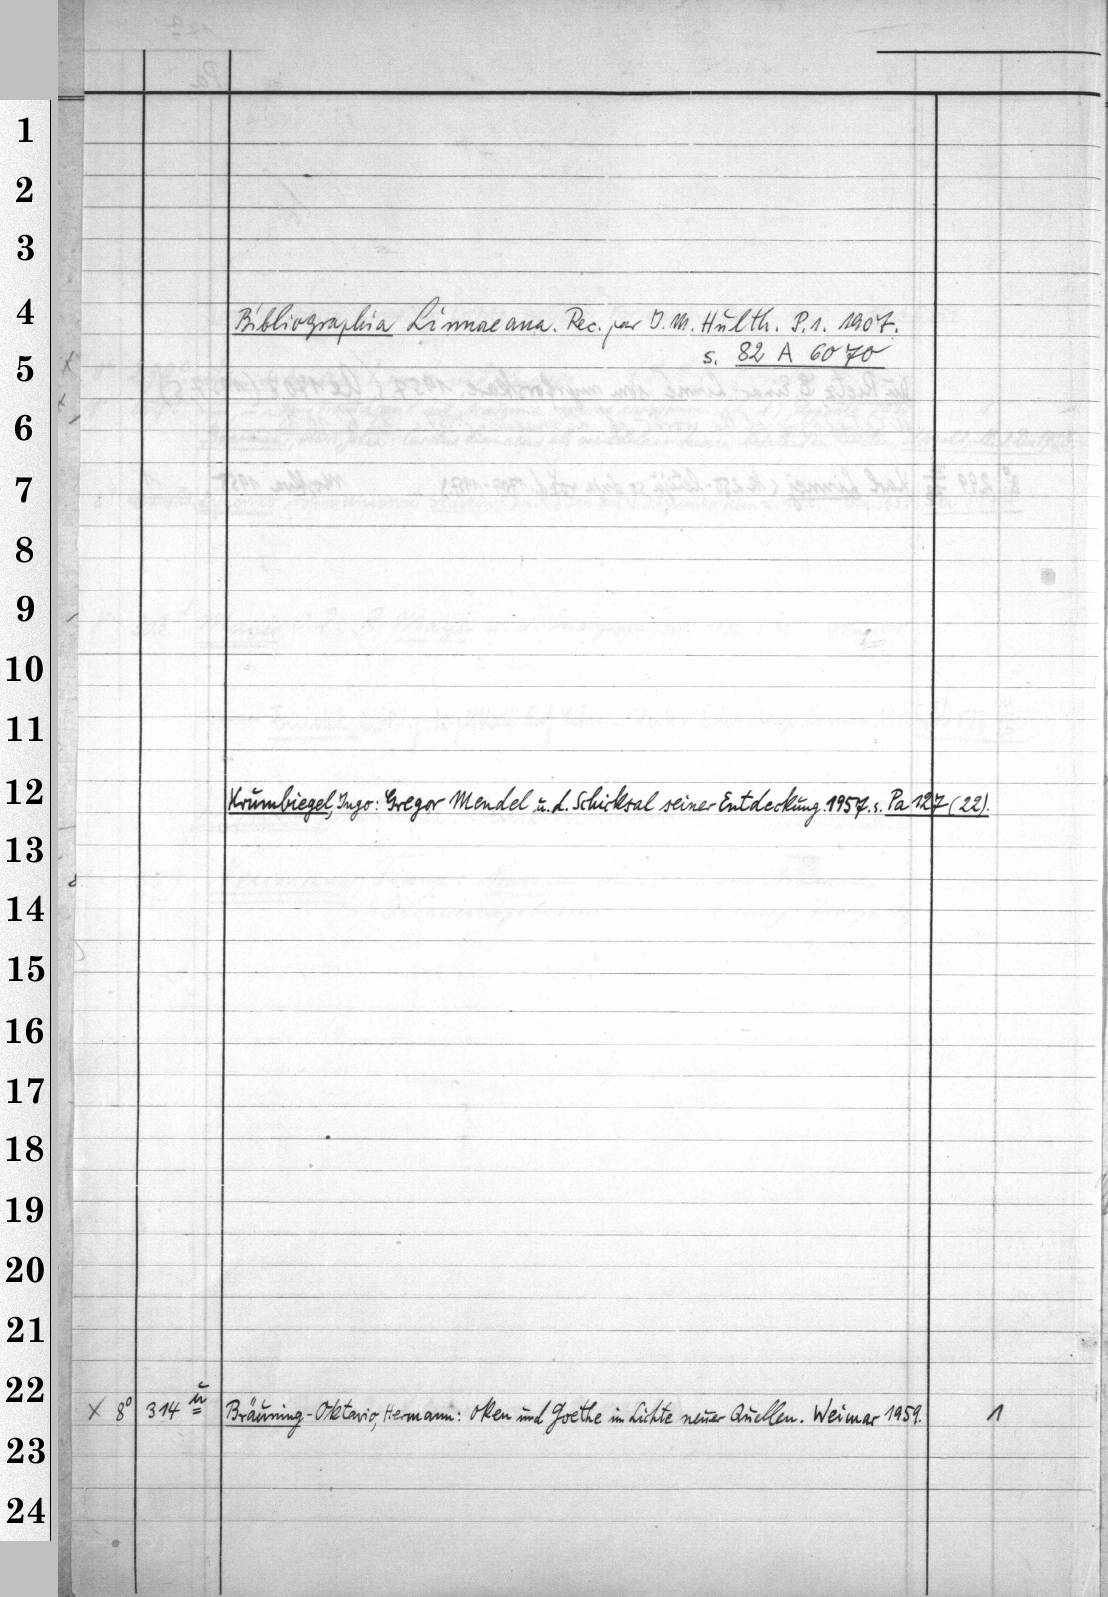 1
2
3
4 Bibliographia Linnaeana. Rec. par J. M. Hulth. P. 1. 1907.
5 s. 82 A 6070
6
7
8
9
10
11
12 Krumbiegel, Ingo: Gregor Mendel u. d. Schicksal seiner Entdeckung. 1957. s. Pa 127 (22).
13
14
15
16
17
18
19
20
21
22 X 8° 314 u Bräuning-Oktavio, Hermann: Oken und Goethe im Lichte neuer Quellen. Weimar 1959. 1
23
24